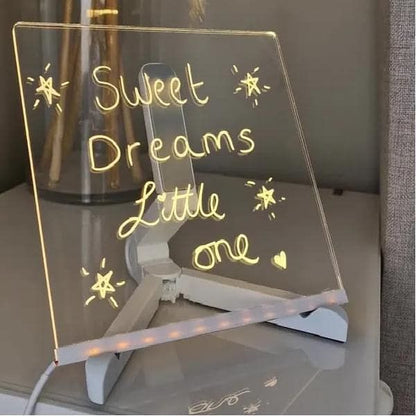 Sweet
Dreams
Little
one